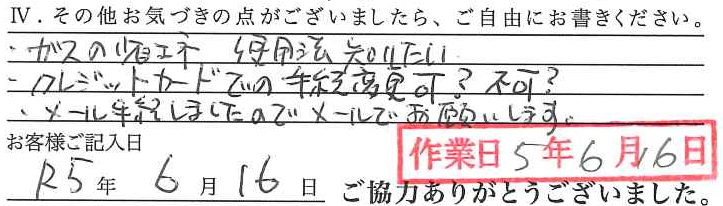 Ⅳ．その他お気づきの点がございましたら、ご自由にお書きください。
・ガスの省エネ 使用法 知りたい
・クレジットカードでの手続変更可？不可？
・メール手続しましたのでメールでお願いします。
お客様ご記入日
作業日 5年6月16日
R5年 6月16日 ご協力ありがとうございました。